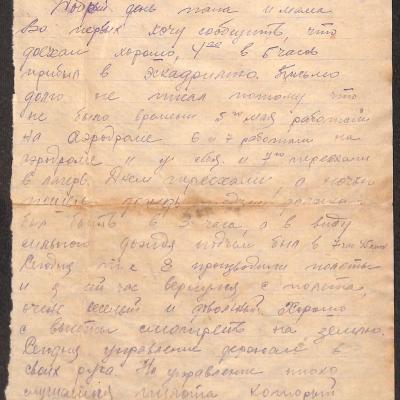 Добрый день папа и мама
Во первых хочу сообщить, что
доехал хорошо, 4го в 5 часов
прибыл в эскадрилью. Письмо
долго не писал потому что
не было времени 5го мая работали
на Аэродроме 6 и 7 работали на
аэродроме и у себя. и 7го переехали
в лагерь. Днем переехали а ночью
пошел дождь
был быть в 3 часа, а в виду
сильного дождя подъем был в 7
Сегодня т.е. 8 производили полеты
и я сей час вернулся с полета
очень веселый и довольный. Хорошо
с высоты смотреть на землю.
Сегодня управление держал в
своих руках. Но управление плохо
слушался пилота который